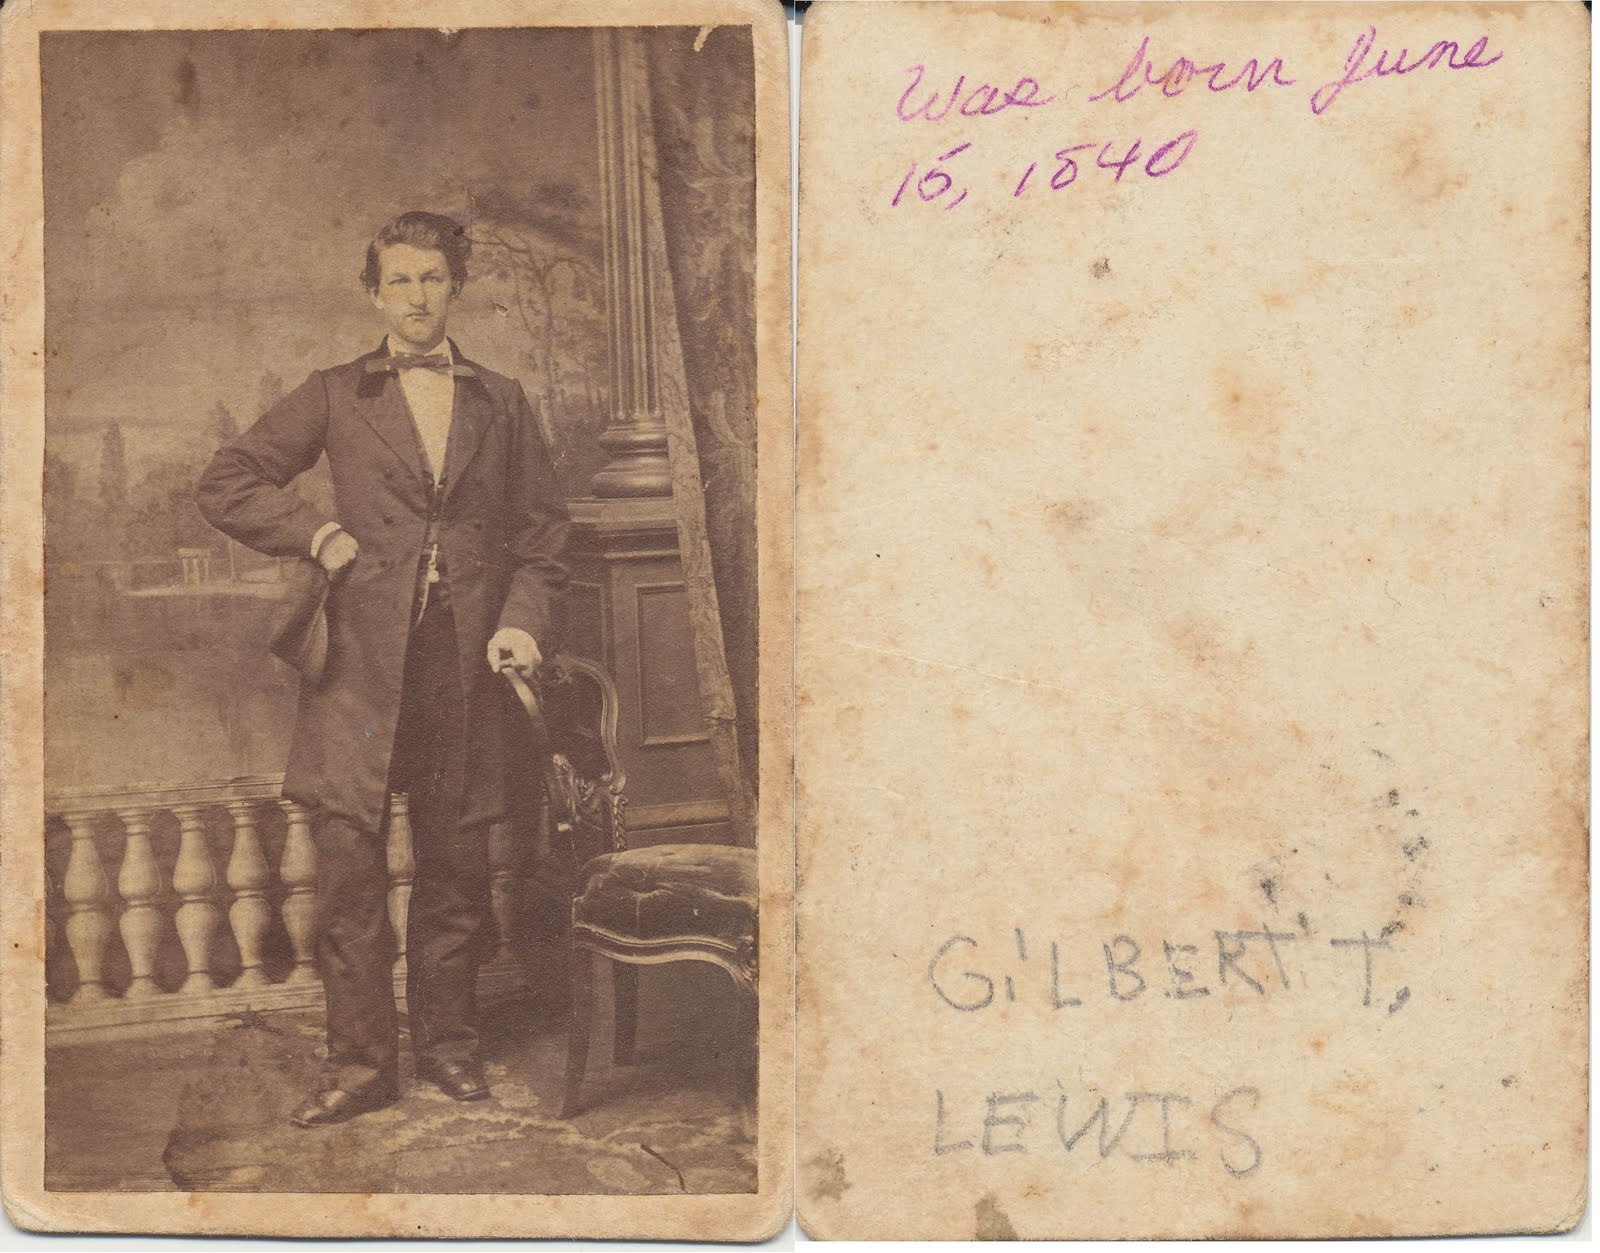 Was born June
15, 1840
GILBERT T.
LEWIS